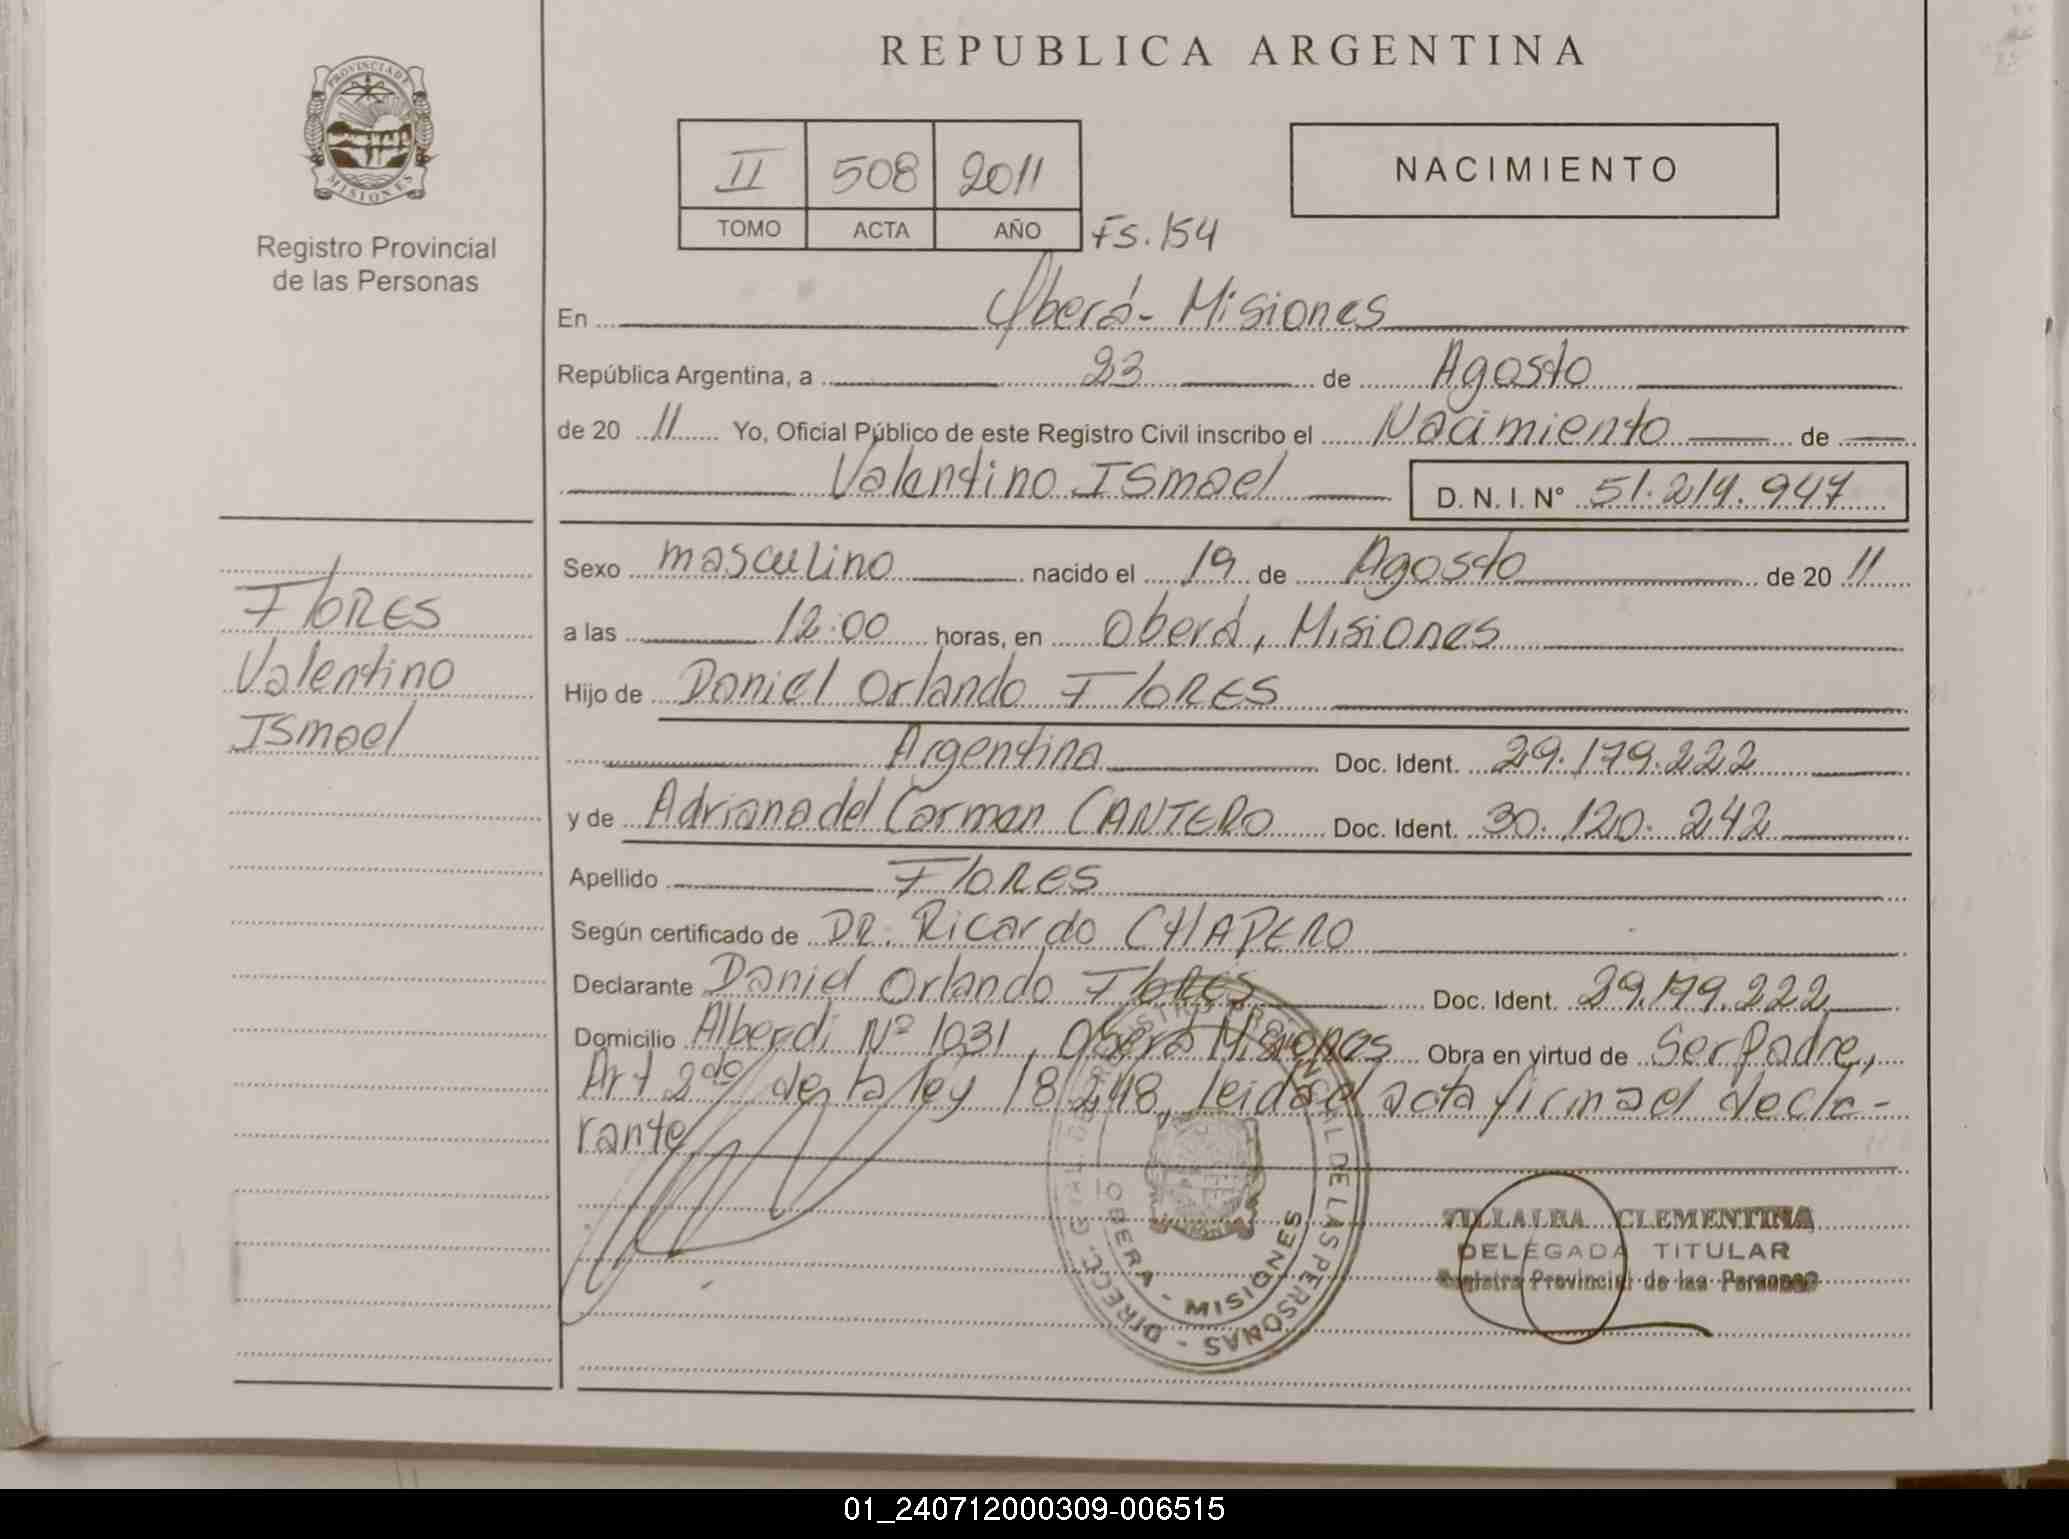 REPUBLICA ARGENTINA
PROVINCIA DE
MISIONES
Registro Provincial
de las Personas
II 508 2011
TOMO ACTA AÑO
Fs. 154
NACIMIENTO
En Oberá - Misiones
República Argentina, a 23 de Agosto
de 20 11 Yo, Oficial Público de este Registro Civil inscribo el Nacimiento de
Valentino Ismael D. N. I. Nº 51.219.947
FLORES
Valentino
Ismael
Sexo masculino nacido el 19 de Agosto de 20 11
a las 12:00 horas, en Oberá, Misiones
Hijo de Daniel Orlando FLORES
Argentina Doc. Ident. 29.179.222
y de Adriana del Carmen CANTERO Doc. Ident. 30.120.242
Apellido FLORES
Según certificado de DR. Ricardo CHAPERO
Declarante Daniel Orlando FLORES Doc. Ident. 29.179.222
Domicilio Alberdi Nº 1031, Oberá Misiones Obra en virtud de Ser Padre,
Art 2do de la ley 18.248, leida el acta firma el decla-
rante
DIRECC. GRAL. DEL REGISTRO PROVINCIAL DE LAS PERSONAS -
OBERA - MISIONES
VILLALBA CLEMENTINA
DELEGADA TITULAR
Registro Provincial de las Personas
01_240712000309-006515